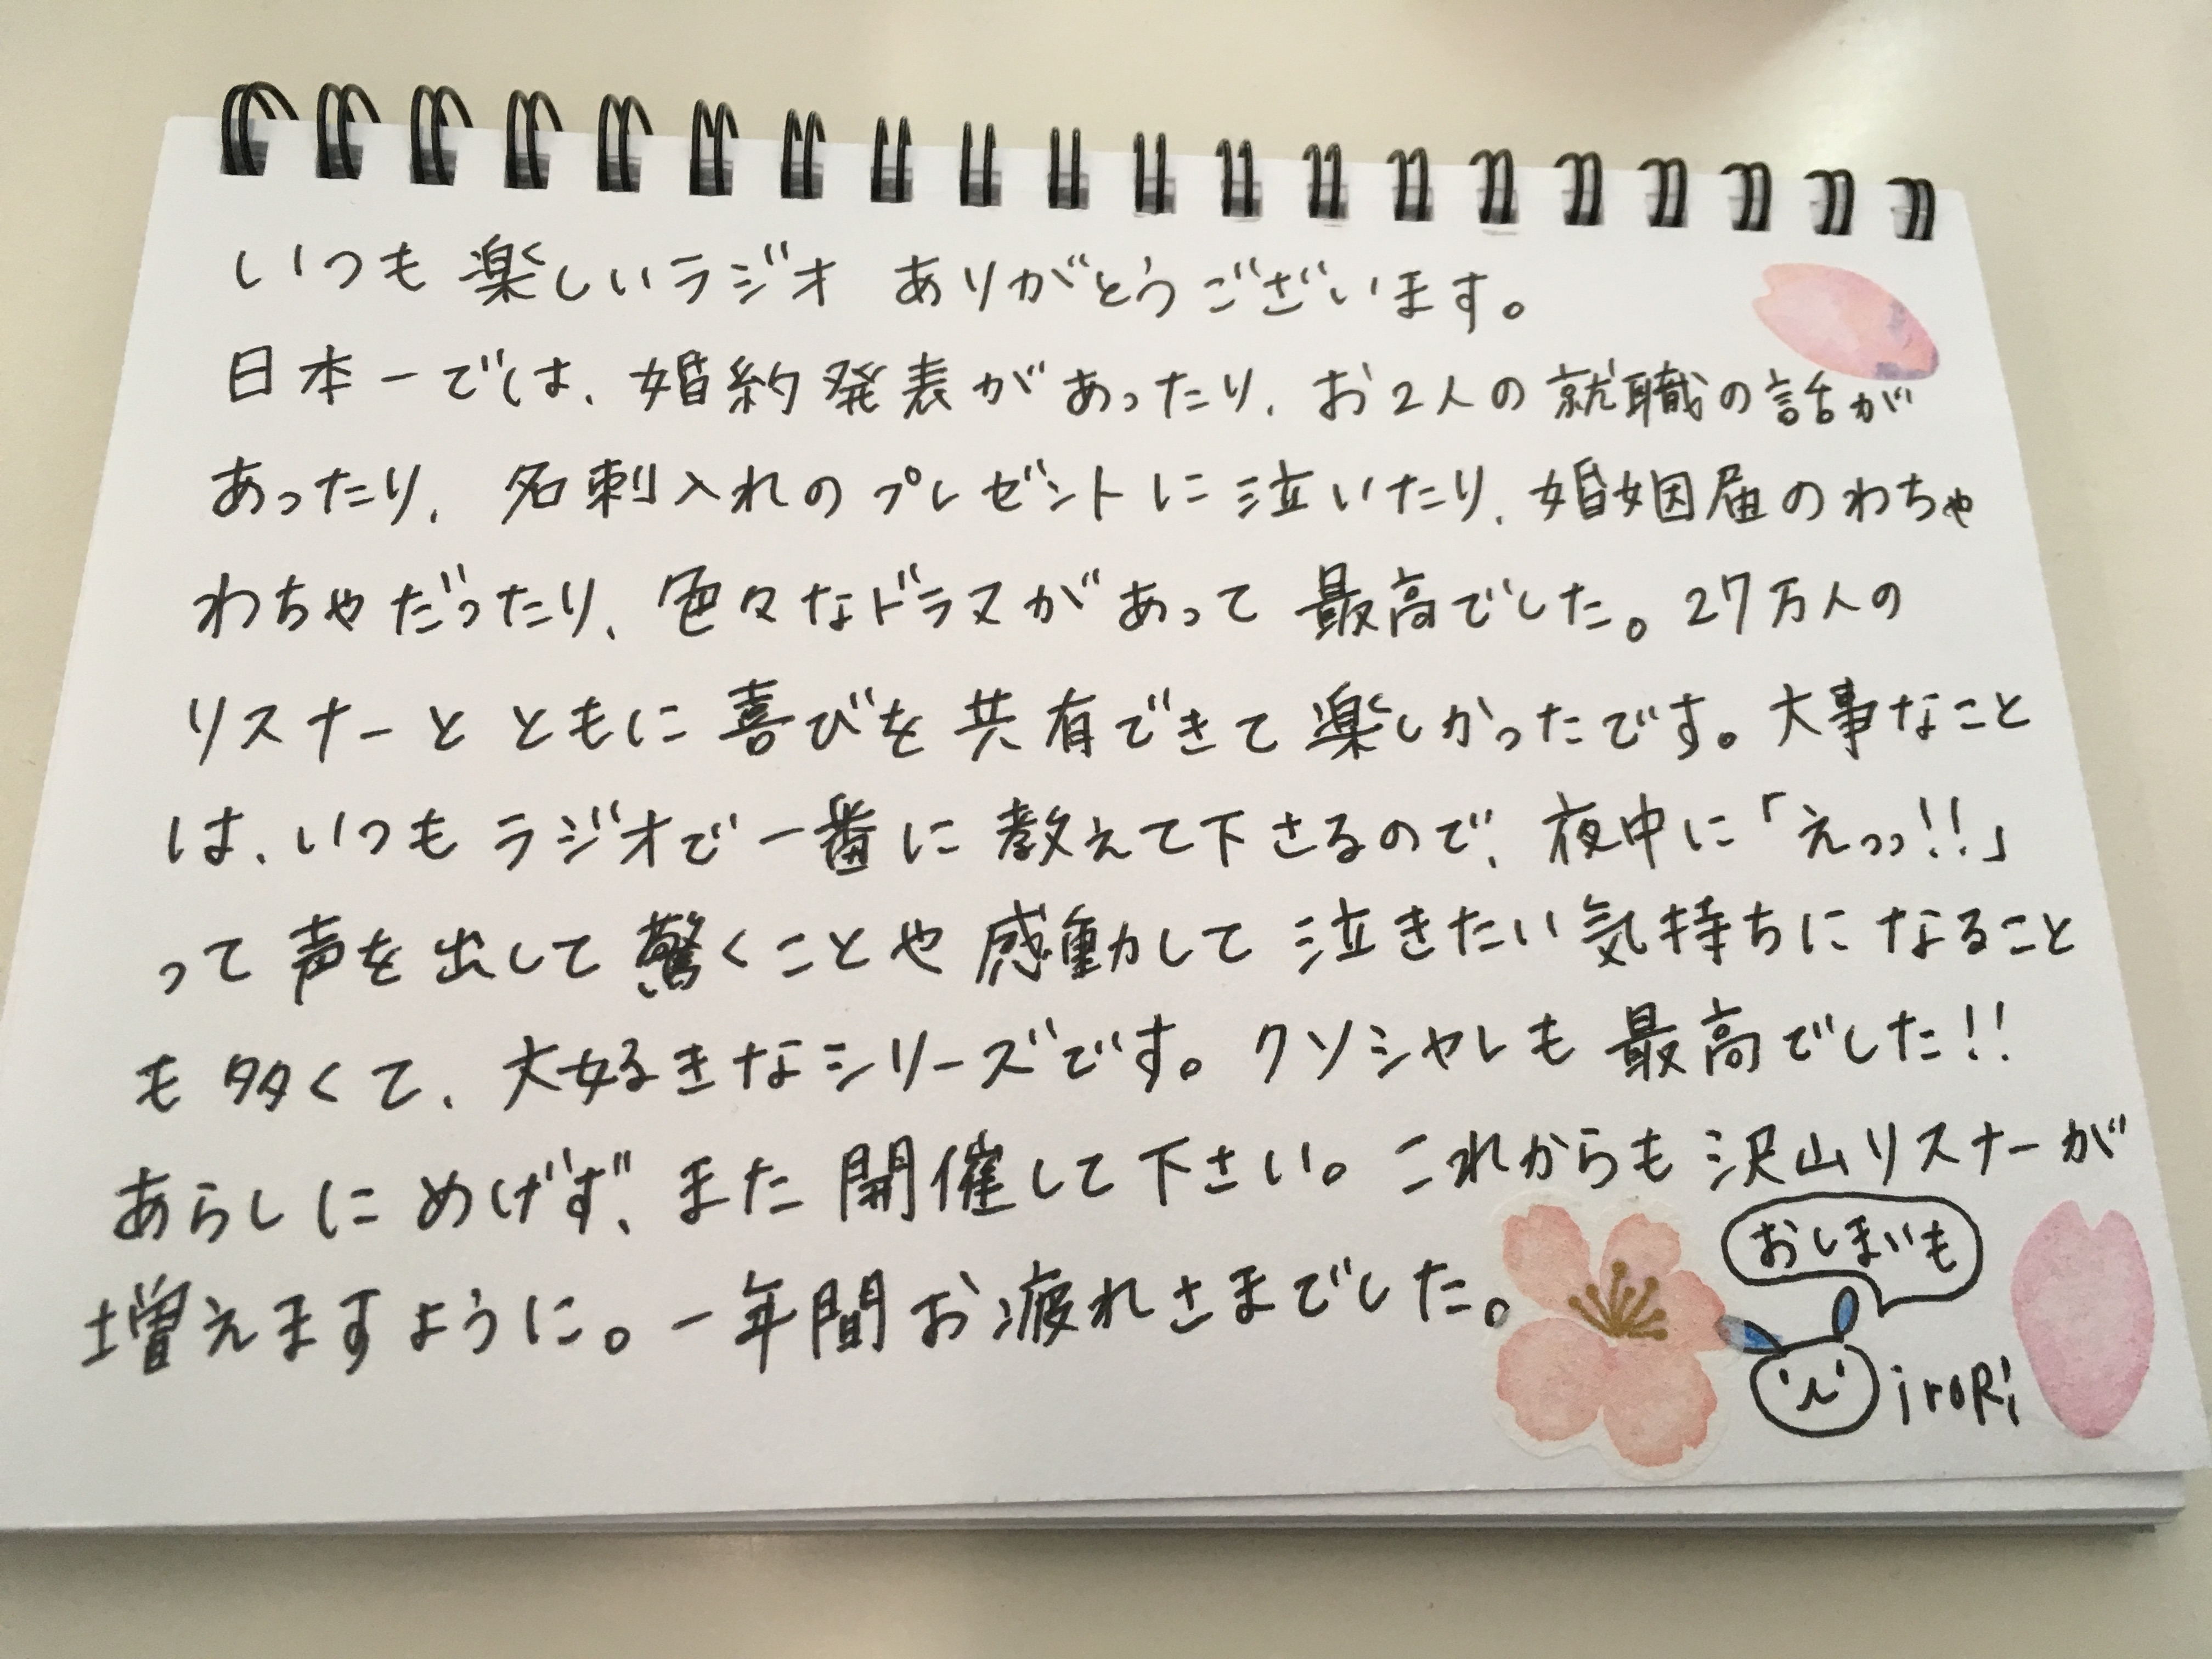 いつも楽しいラジオ ありがとうございます。
日本一では、婚約発表があったり、お2人の就職の話が
あったり、名刺入れのプレゼントに泣いたり、婚姻届のわちゃ
わちゃだったり、色々なドラマがあって最高でした。27万人の
リスナーとともに喜びを共有できて楽しかったです。大事なこと
は、いつもラジオで一番に教えて下さるので、夜中に「えっっ!!」
って声を出して驚くことや感動して泣きたい気持ちになること
も多くて、大好きなシリーズです。クソシャレも最高でした!!
あらしにめげず、また開催して下さい。これからも沢山リスナーが
増えますように。一年間お疲れさまでした。
おしまいも
iroRi